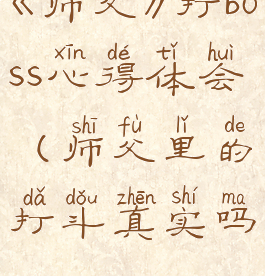 《师父》打bo
xīn dé tǐ huì
ss心得体会
shī fù lǐ de
（师父里的
dǎ dǒu zhēn shí ma
打斗真实吗